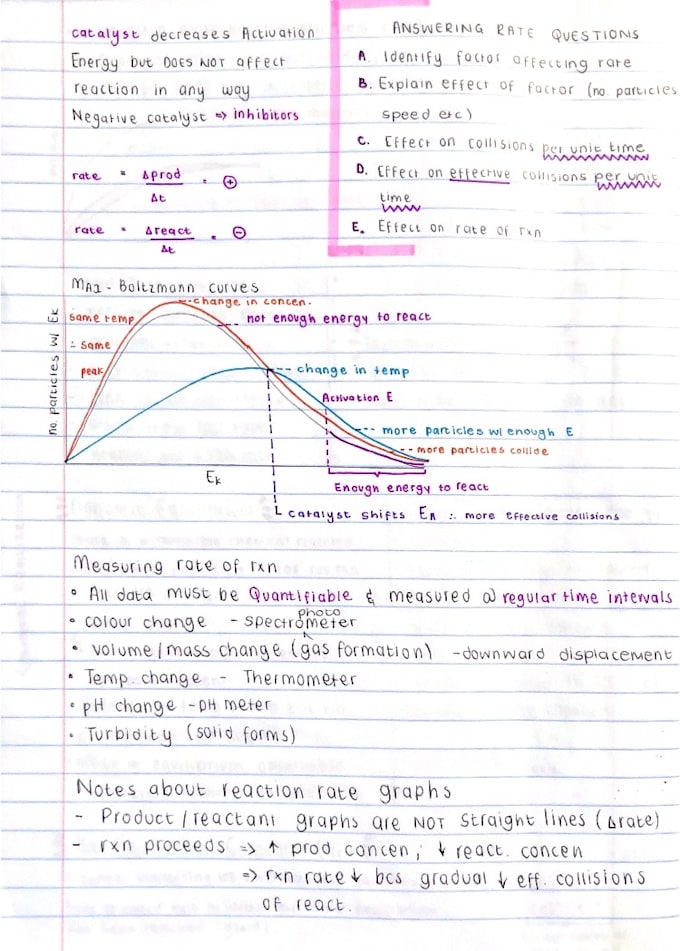 catalyst decreases Activation
Energy but DOES NOT affect
reaction in any way
Negative catalyst => inhibitors
rate = Δprod / Δt = ⊕
rate = Δreact / Δt = ⊖
ANSWERING RATE QUESTIONS
A. Identify factor affecting rate
B. Explain effect of factor (no. particles
speed etc)
C. Effect on collisions per unit time
D. Effect on effective collisions per unit
time
E. Effect on rate of rxn
Max - Boltzmann curves
no. particles w/ Ek
same temp
∴ same
peak
change in concen.
not enough energy to react
change in temp
Activation E
more particles w/ enough E
more particles collide
Ek
Enough energy to react
catalyst shifts EA ∴ more effective collisions
Measuring rate of rxn
• All data must be Quantifiable & measured @ regular time intervals
• colour change - spectrophotometer
• volume/mass change (gas formation) - downward displacement
• Temp. change - Thermometer
• pH change - pH meter
• Turbidity (solid forms)
Notes about reaction rate graphs
- Product/reactant graphs are NOT straight lines (Δrate)
- rxn proceeds => ↑ prod concen; ↓ react. concen
=> rxn rate ↓ bcs gradual ↓ eff. collisions
of react.